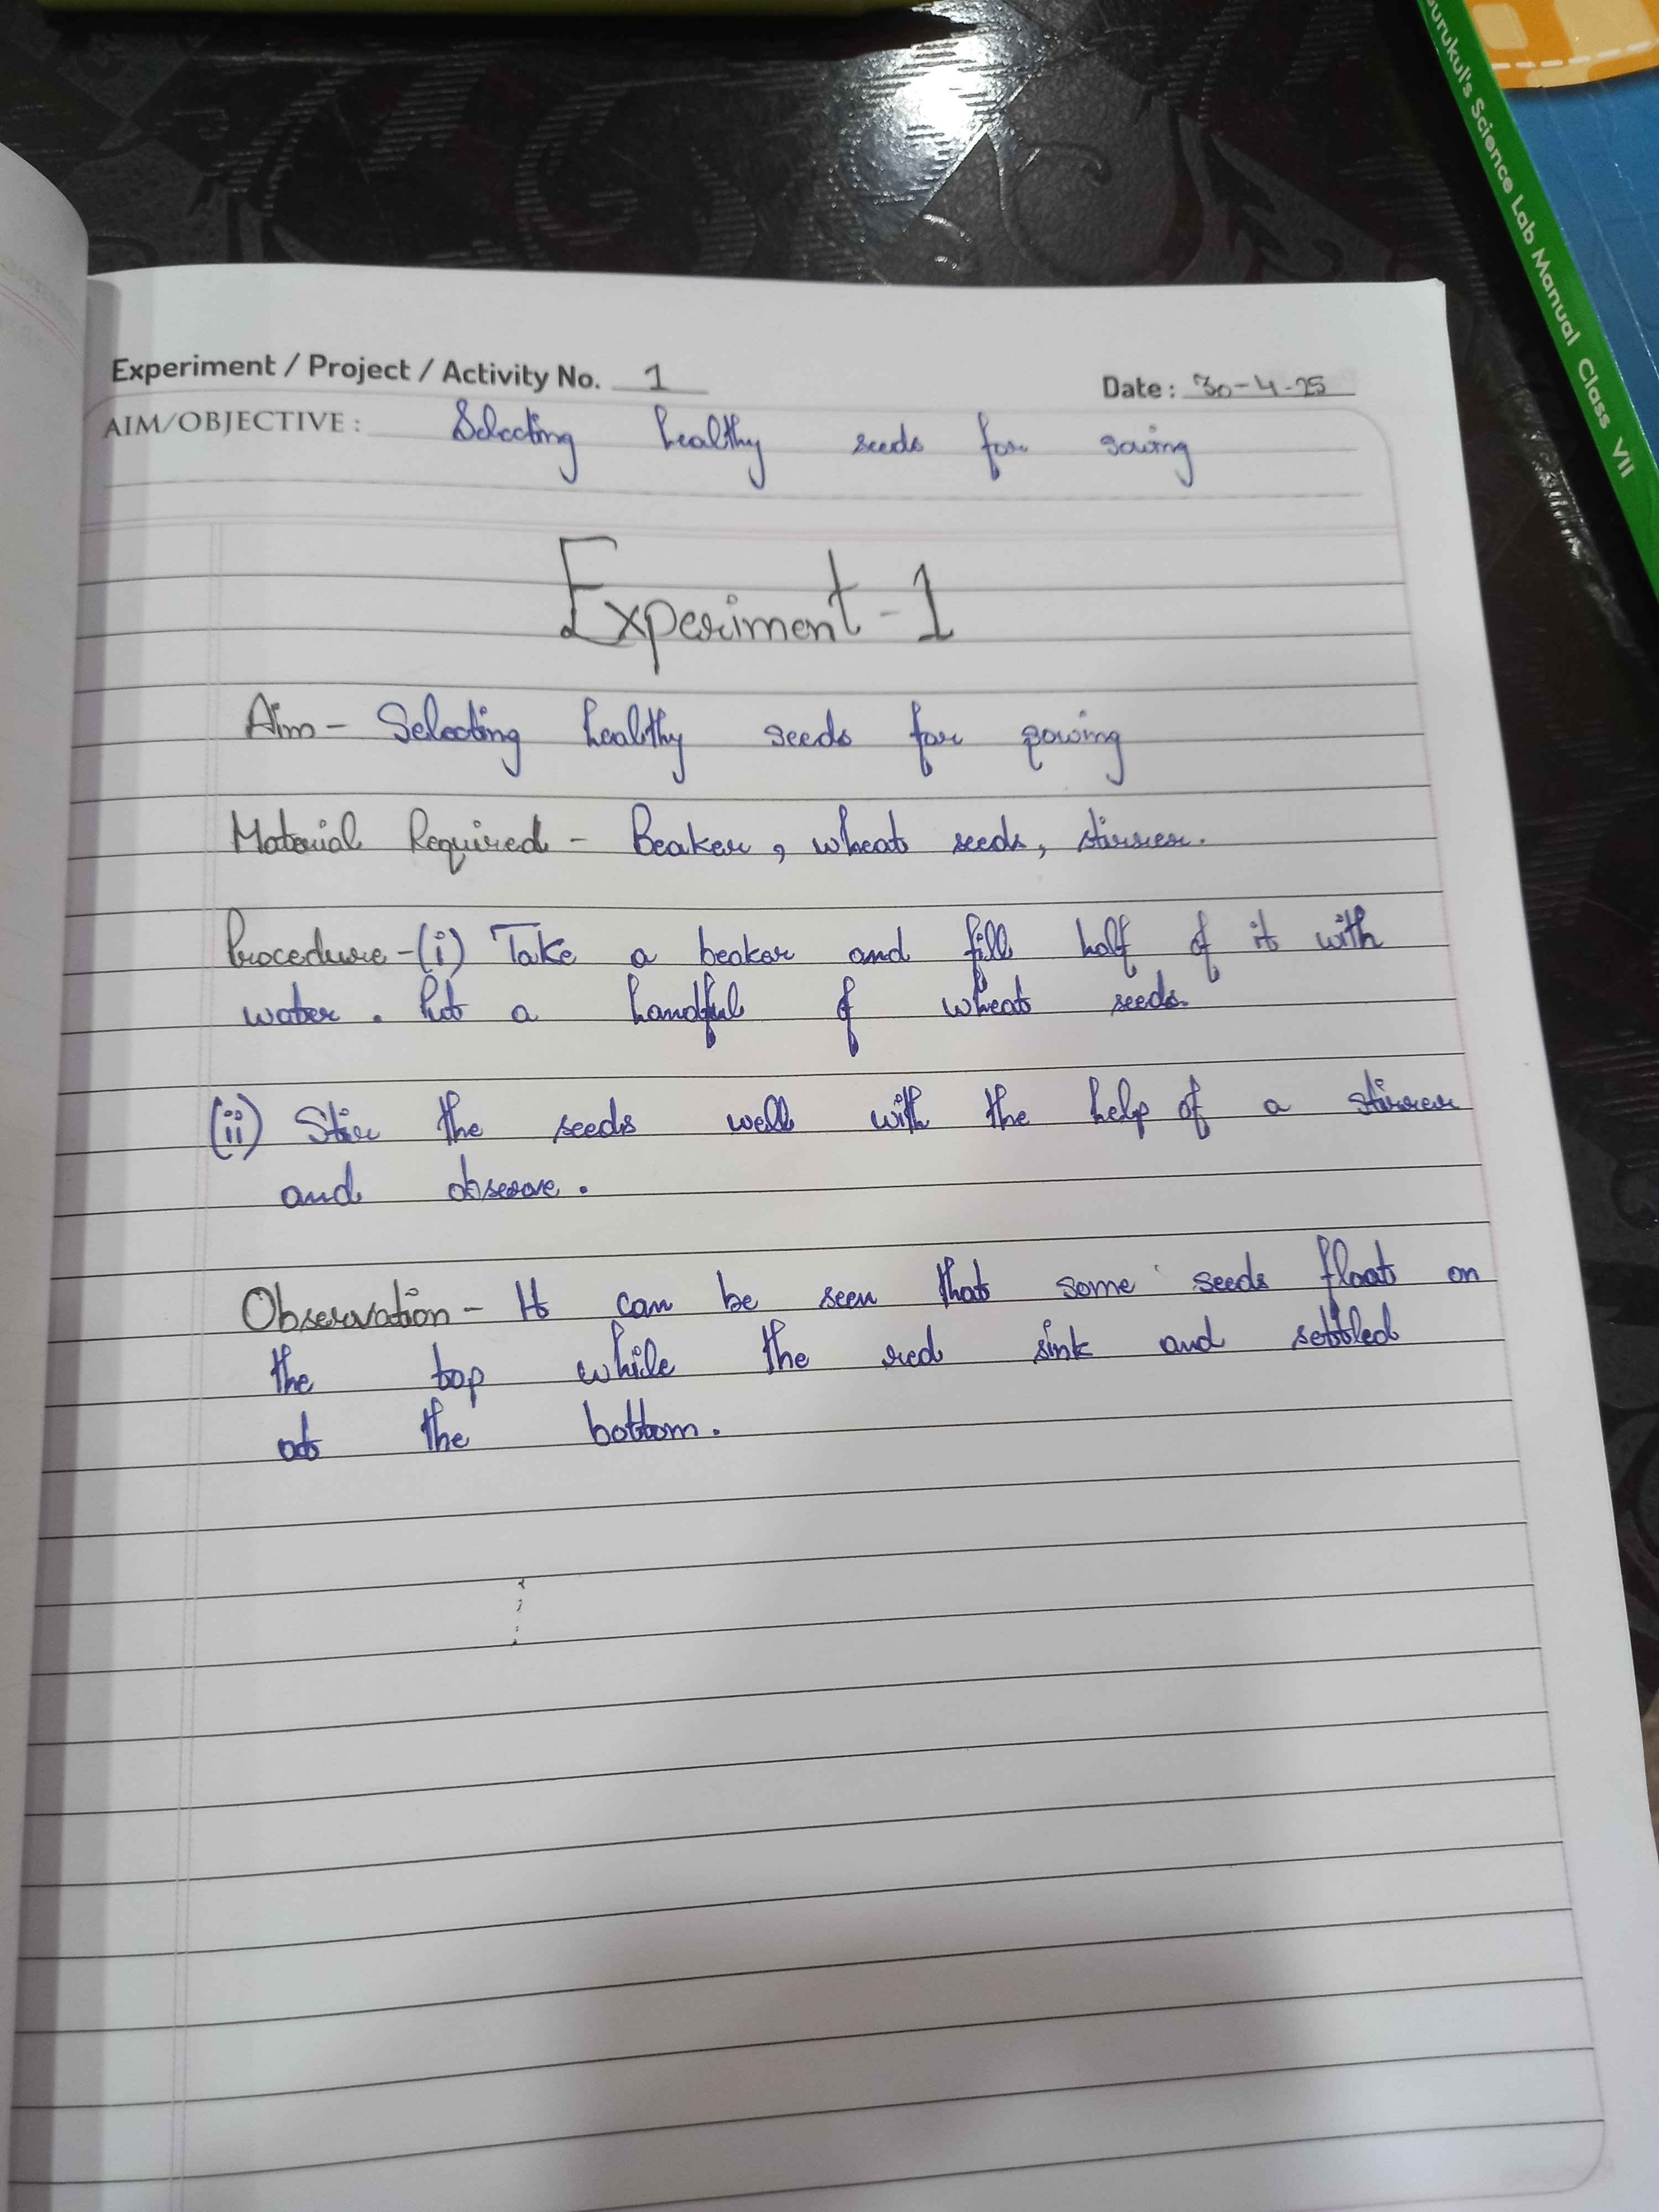 Gurukul's Science Lab Manual Class VII
Experiment / Project / Activity No. 1
Date: 30-4-25
AIM/OBJECTIVE: Selecting healthy seeds for sowing
Experiment-1
Aim - Selecting healthy seeds for sowing
Material Required - Beaker, wheat seeds, stirrer.
Procedure-(i) Take a beaker and fill half of it with
water. Put a handful of wheat seeds.
(ii) Stir the seeds well with the help of a stirrer
and observe.
Observation - It can be seen that some seeds float on
the top while the red sink and settled
at the bottom.